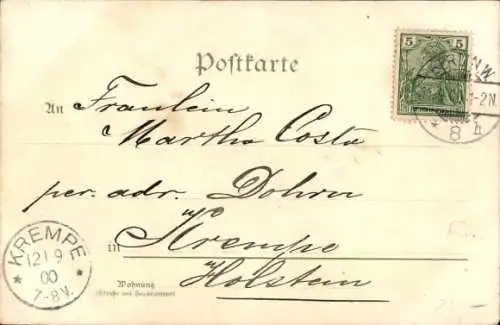 Postkarte
5 5
N.W.
1-2N.
8 h
An Fräulein
Martha Costa
per. adr. Dohrn
in Krempe
Holstein
KREMPE
12/9
00
7-8V.
Wohnung
(Straße und Hausnummer)